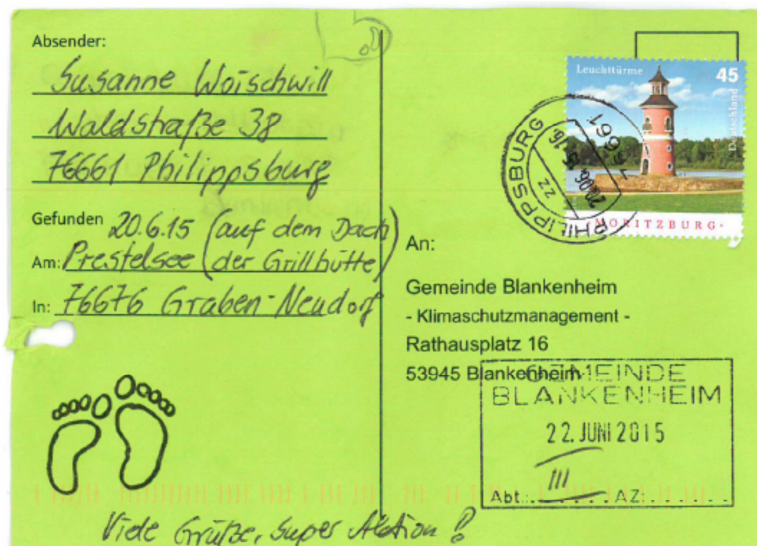 Absender:
Susanne Woischwill
Waldstraße 38
76661 Philippsburg
Gefunden 20.6.15 (auf dem Dach
Am: Prestelsee (der Grillhütte)
In: 76676 Graben-Neudorf
Viele Grüße, super Aktion!
Leuchttürme 45
Deutschland
MORITZBURG
PHILIPPSBURG
76661
22
An:
Gemeinde Blankenheim
- Klimaschutzmanagement -
Rathausplatz 16
53945 Blankenheim
GEMEINDE
BLANKENHEIM
22. JUNI 2015
III
Abt.: AZ: